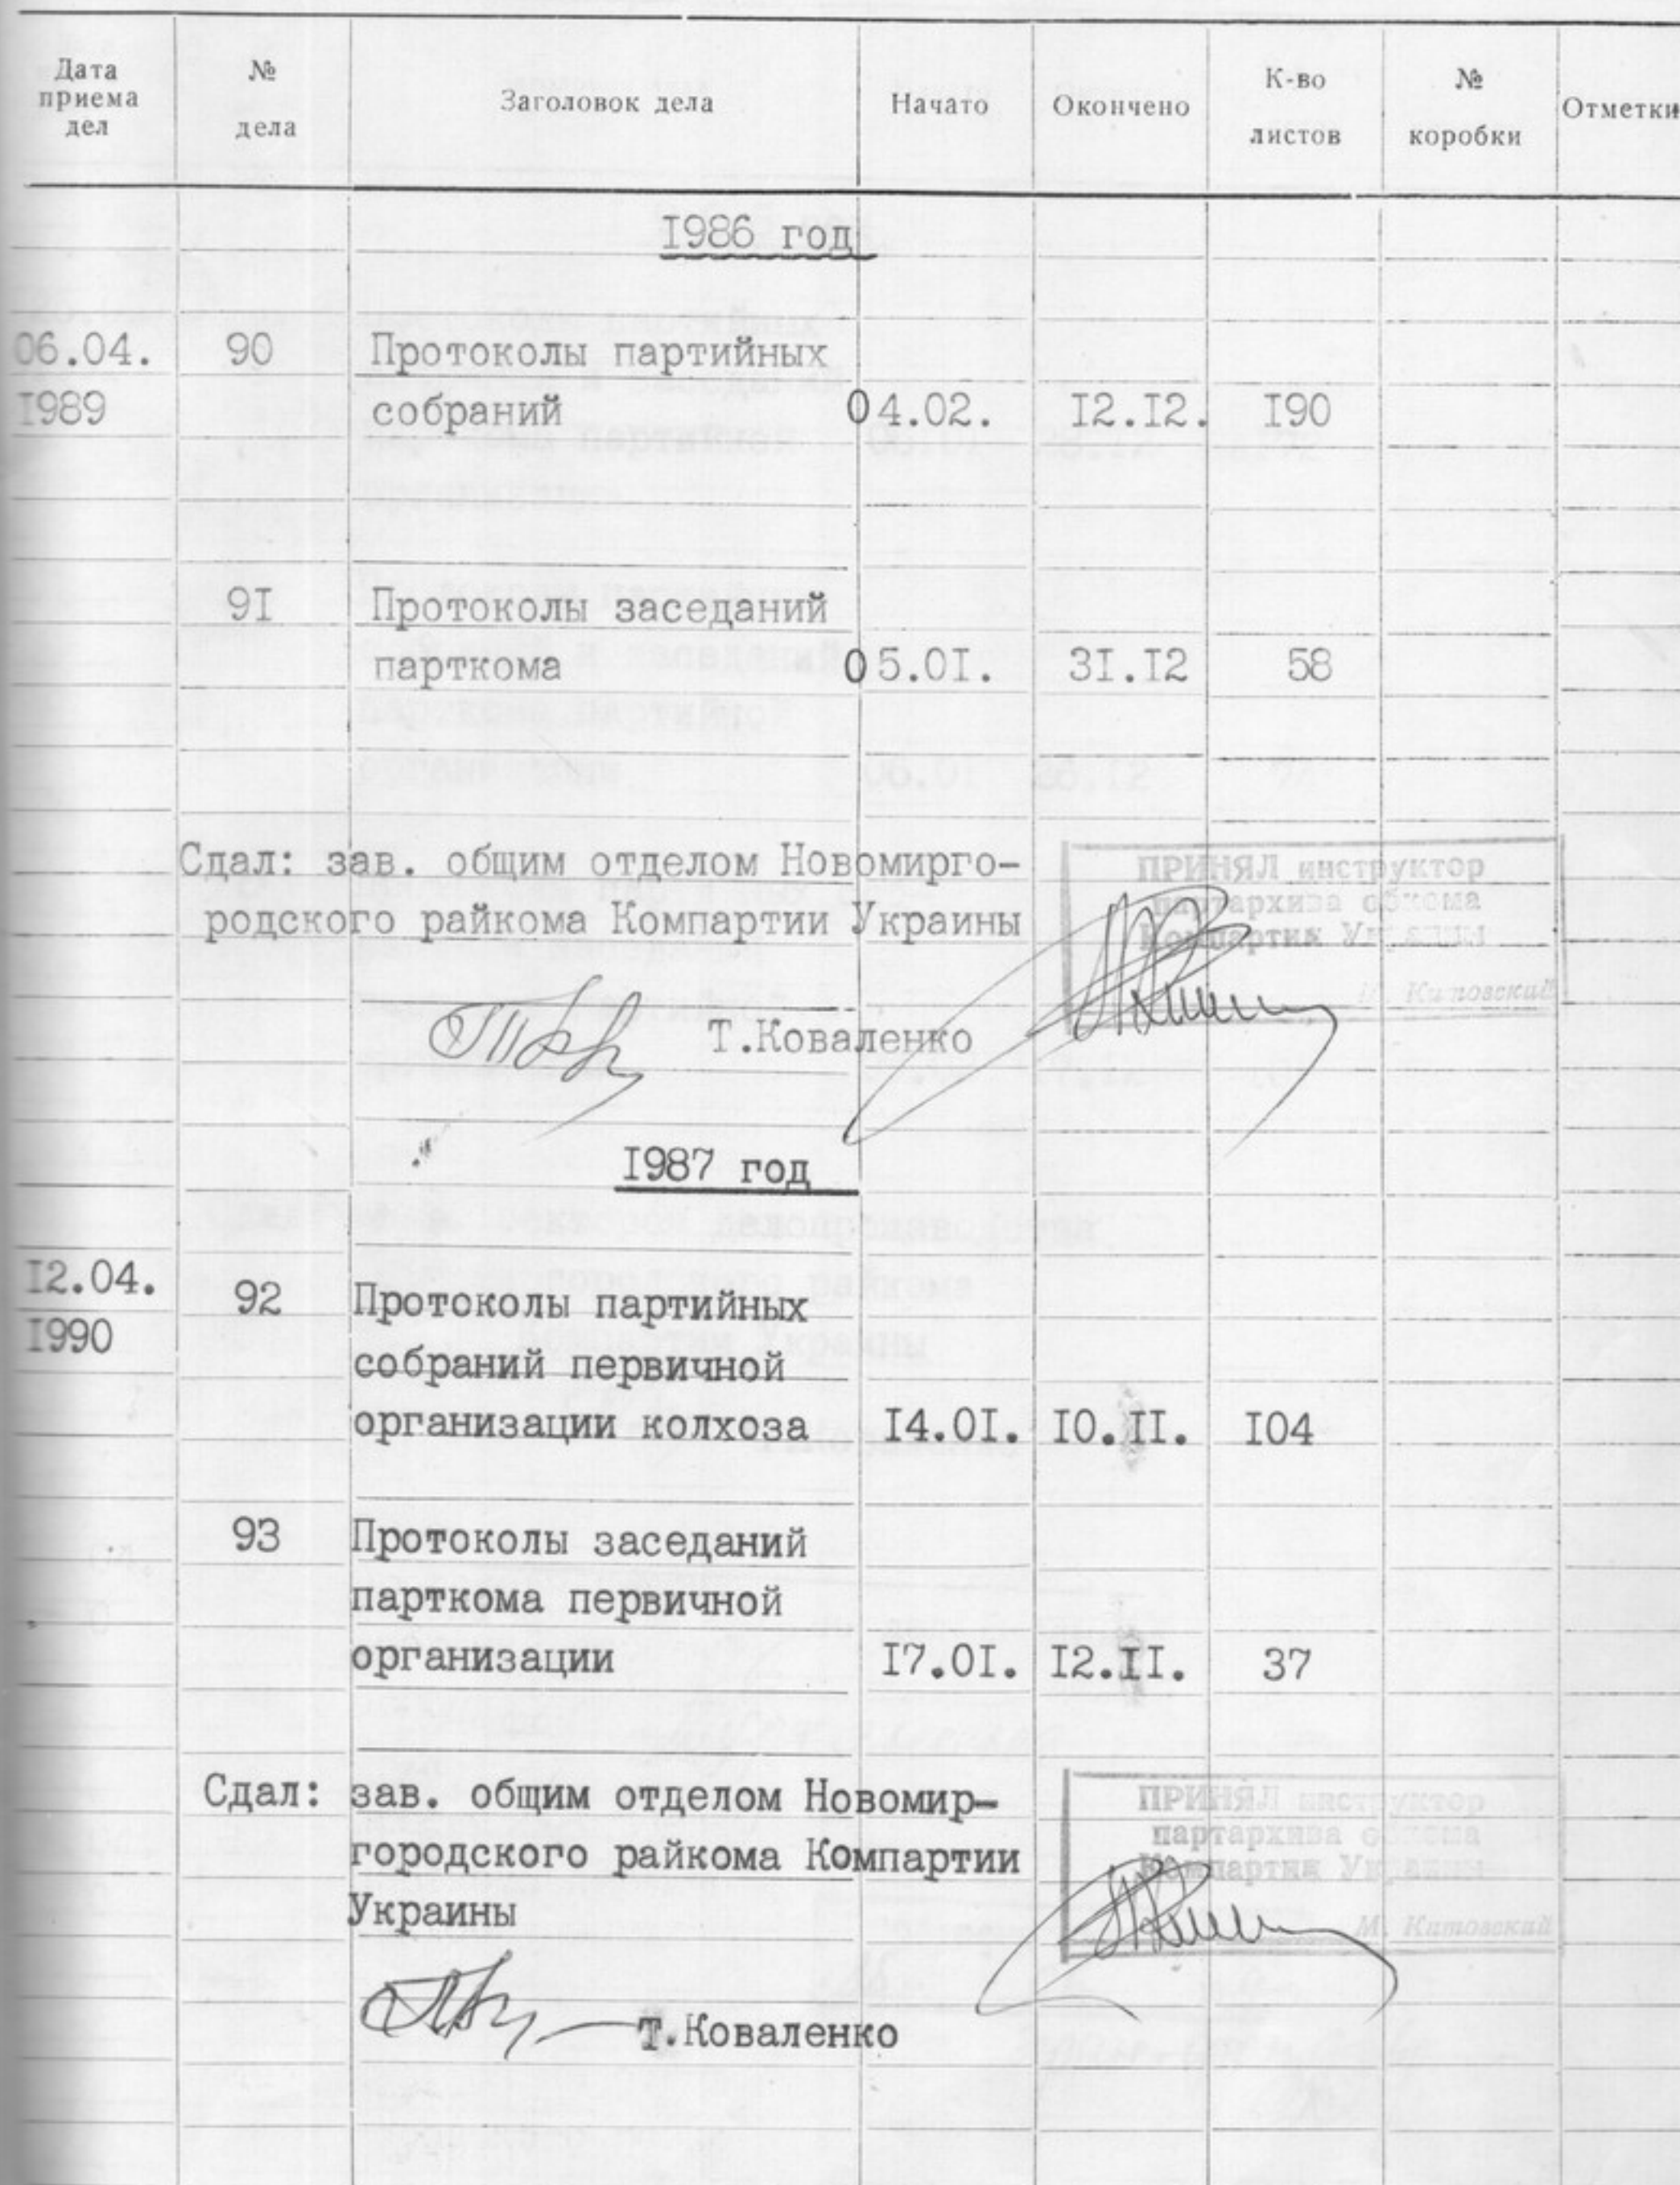 Дата приема дел № дела Заголовок дела Начато Окончено К-во листов № коробки Отметки
I986 год
06.04. 90 Протоколы партийных
I989 собраний 04.02. I2.I2. I90
9I Протоколы заседаний
парткома 05.0I. 3I.I2 58
Сдал: зав. общим отделом Новомирго-
родского райкома Компартии Украины
ПРИНЯЛ инструктор
партархива обкома
Компартии Украины
Китовский
Т.Коваленко
I987 год
I2.04. 92 Протоколы партийных
I990 собраний первичной
организации колхоза I4.0I. I0.II. I04
93 Протоколы заседаний
парткома первичной
организации I7.0I. I2.II. 37
Сдал: зав. общим отделом Новомир-
городского райкома Компартии
Украины
ПРИНЯЛ инструктор
партархива обкома
Компартии Украины
М. Китовский
Т.Коваленко